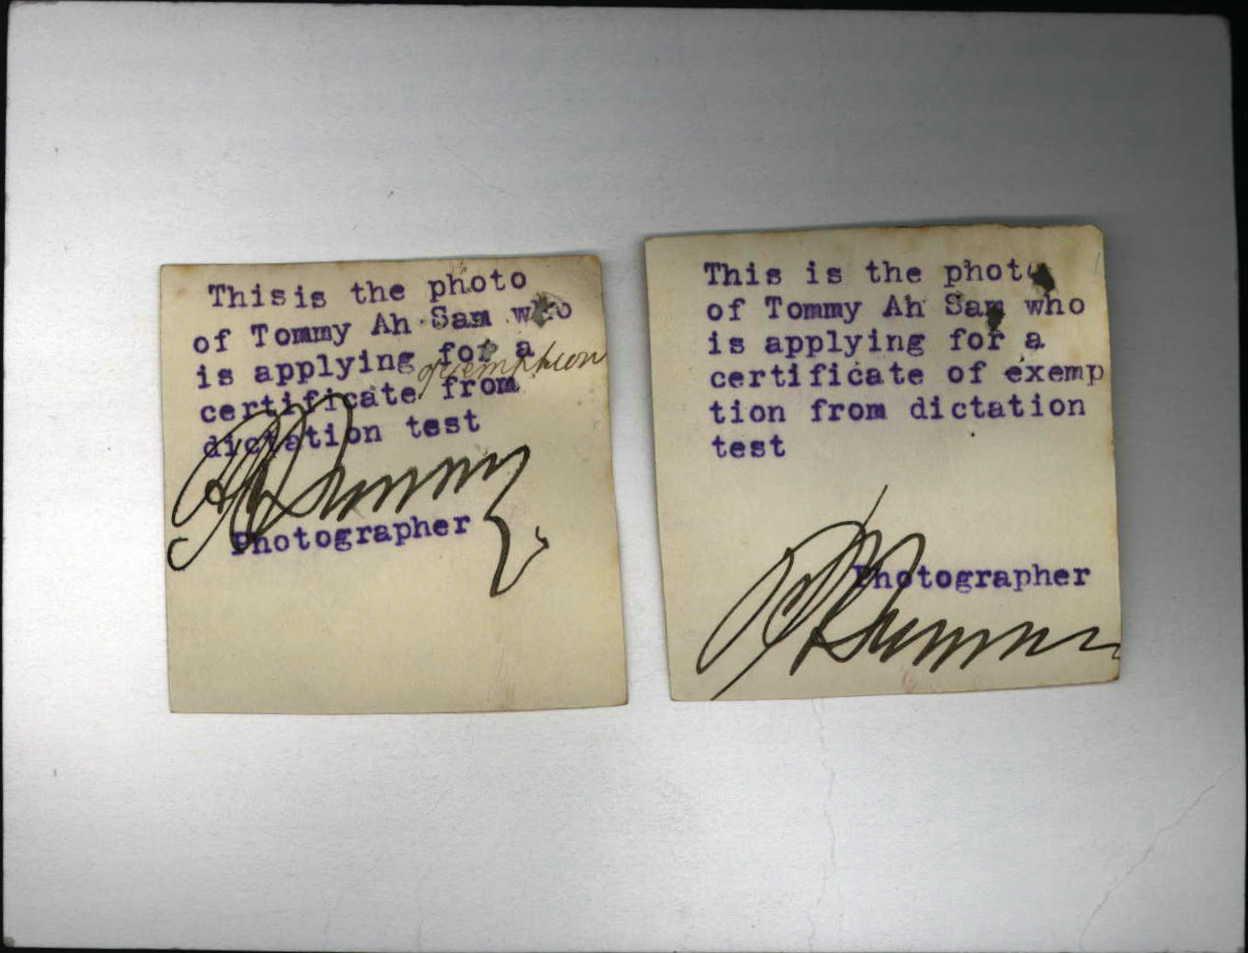 This is the photo
of Tommy Ah Sam who
is applying for a
of exemption
certificate from
dictation test
Photographer
This is the photo
of Tommy Ah Sam who
is applying for a
certificate of exemp
tion from dictation
test
Photographer